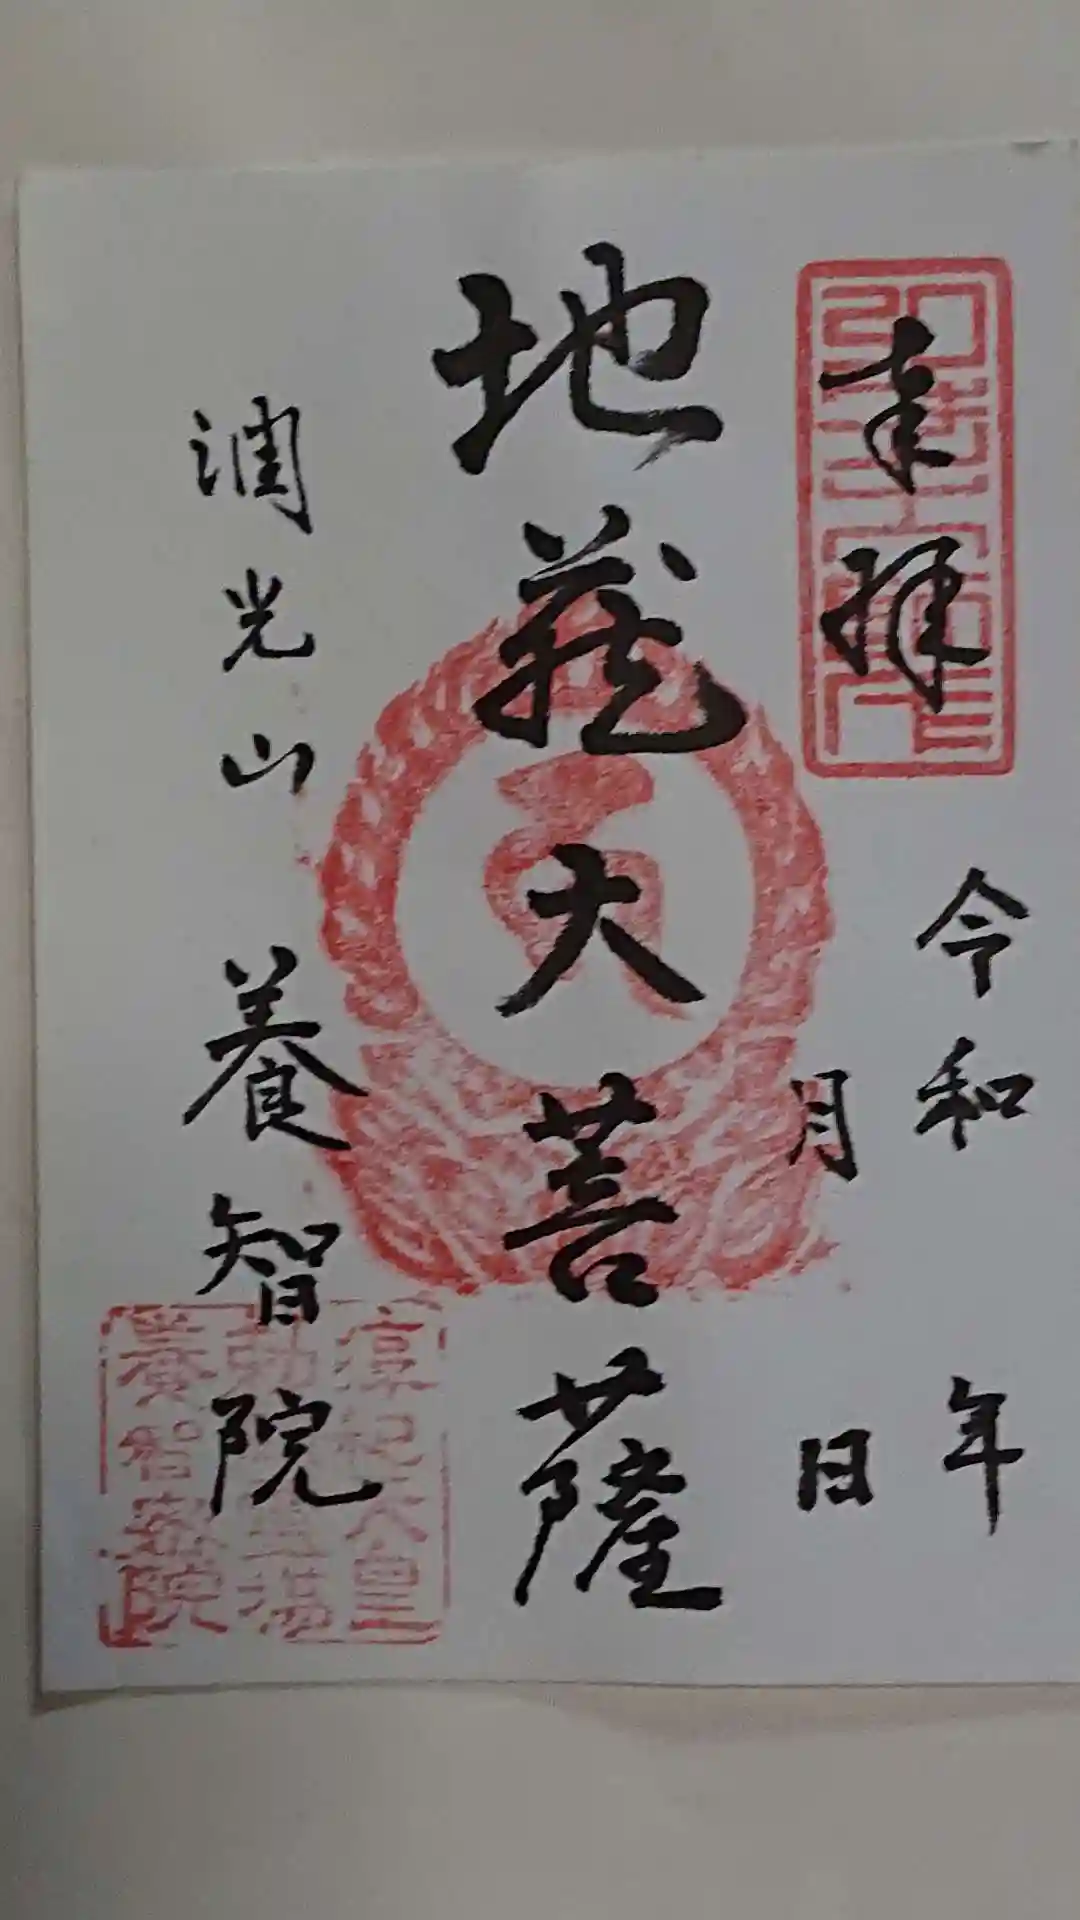 奉拝
令和 年
月 日
地蔵大菩薩
潤光山 養智院
淳和天皇
勅願道場
養智院